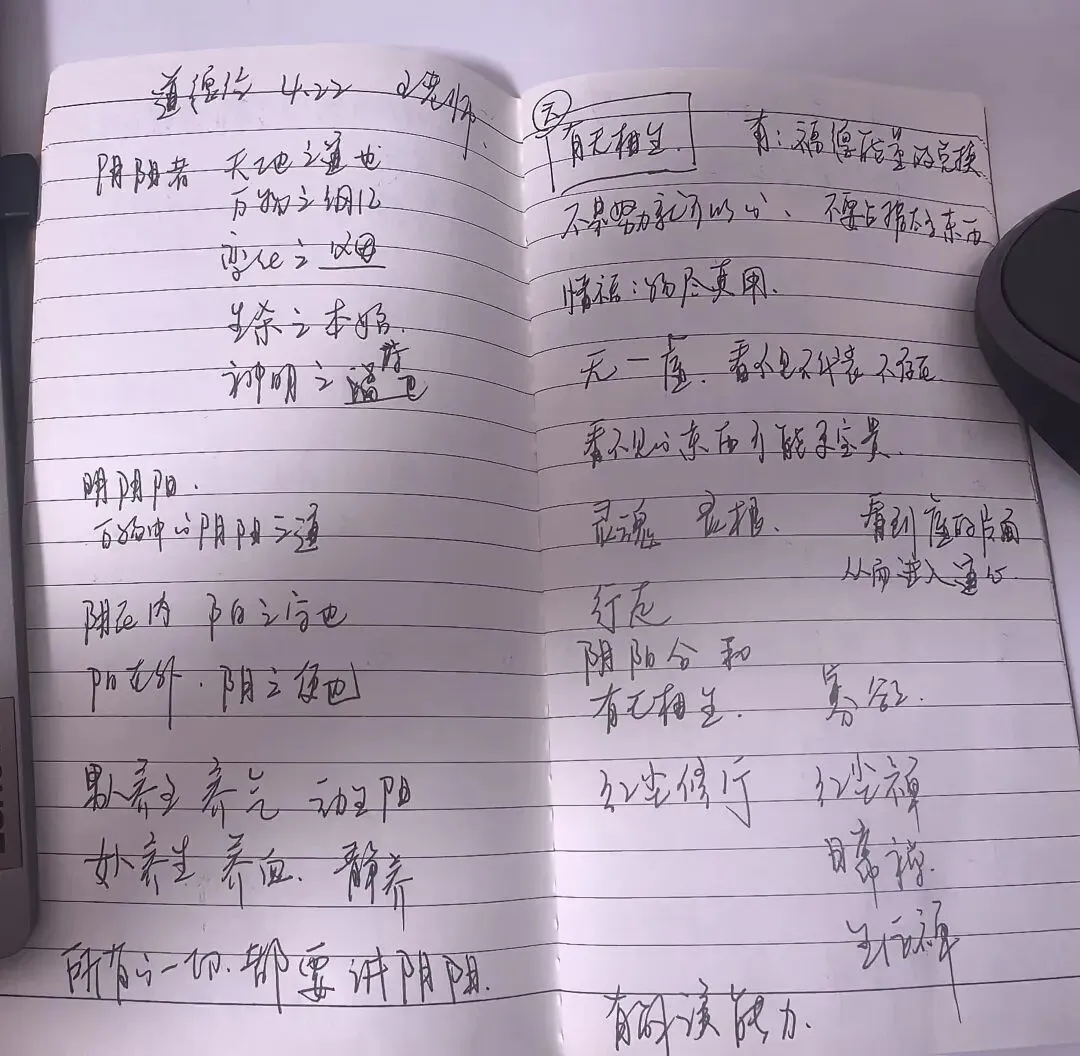 道德经 4.22
阴阳者 天地之道也
万物之纲纪
变化之父母
生杀之本始
神明之府也
明阴阳.
万物中的阴阳之道
阴在内 阳之守也
阳在外. 阴之使也
男人养生 养气 动生阳
女人养生 养血. 静养
所有的一切. 都要讲阴阳.
有无相生. 有:福德能量的兑换
不是努力就可以的、不要占据太多东西
惜福:物尽其用.
无一 看不见不代表不存在
看不见的东西才能是宝贵
灵魂 看到 的片面
从而进入道的.
行在
阴阳合和
有无相生.
红尘修行 红尘禅
日常禅.
生活禅
有的 能力.